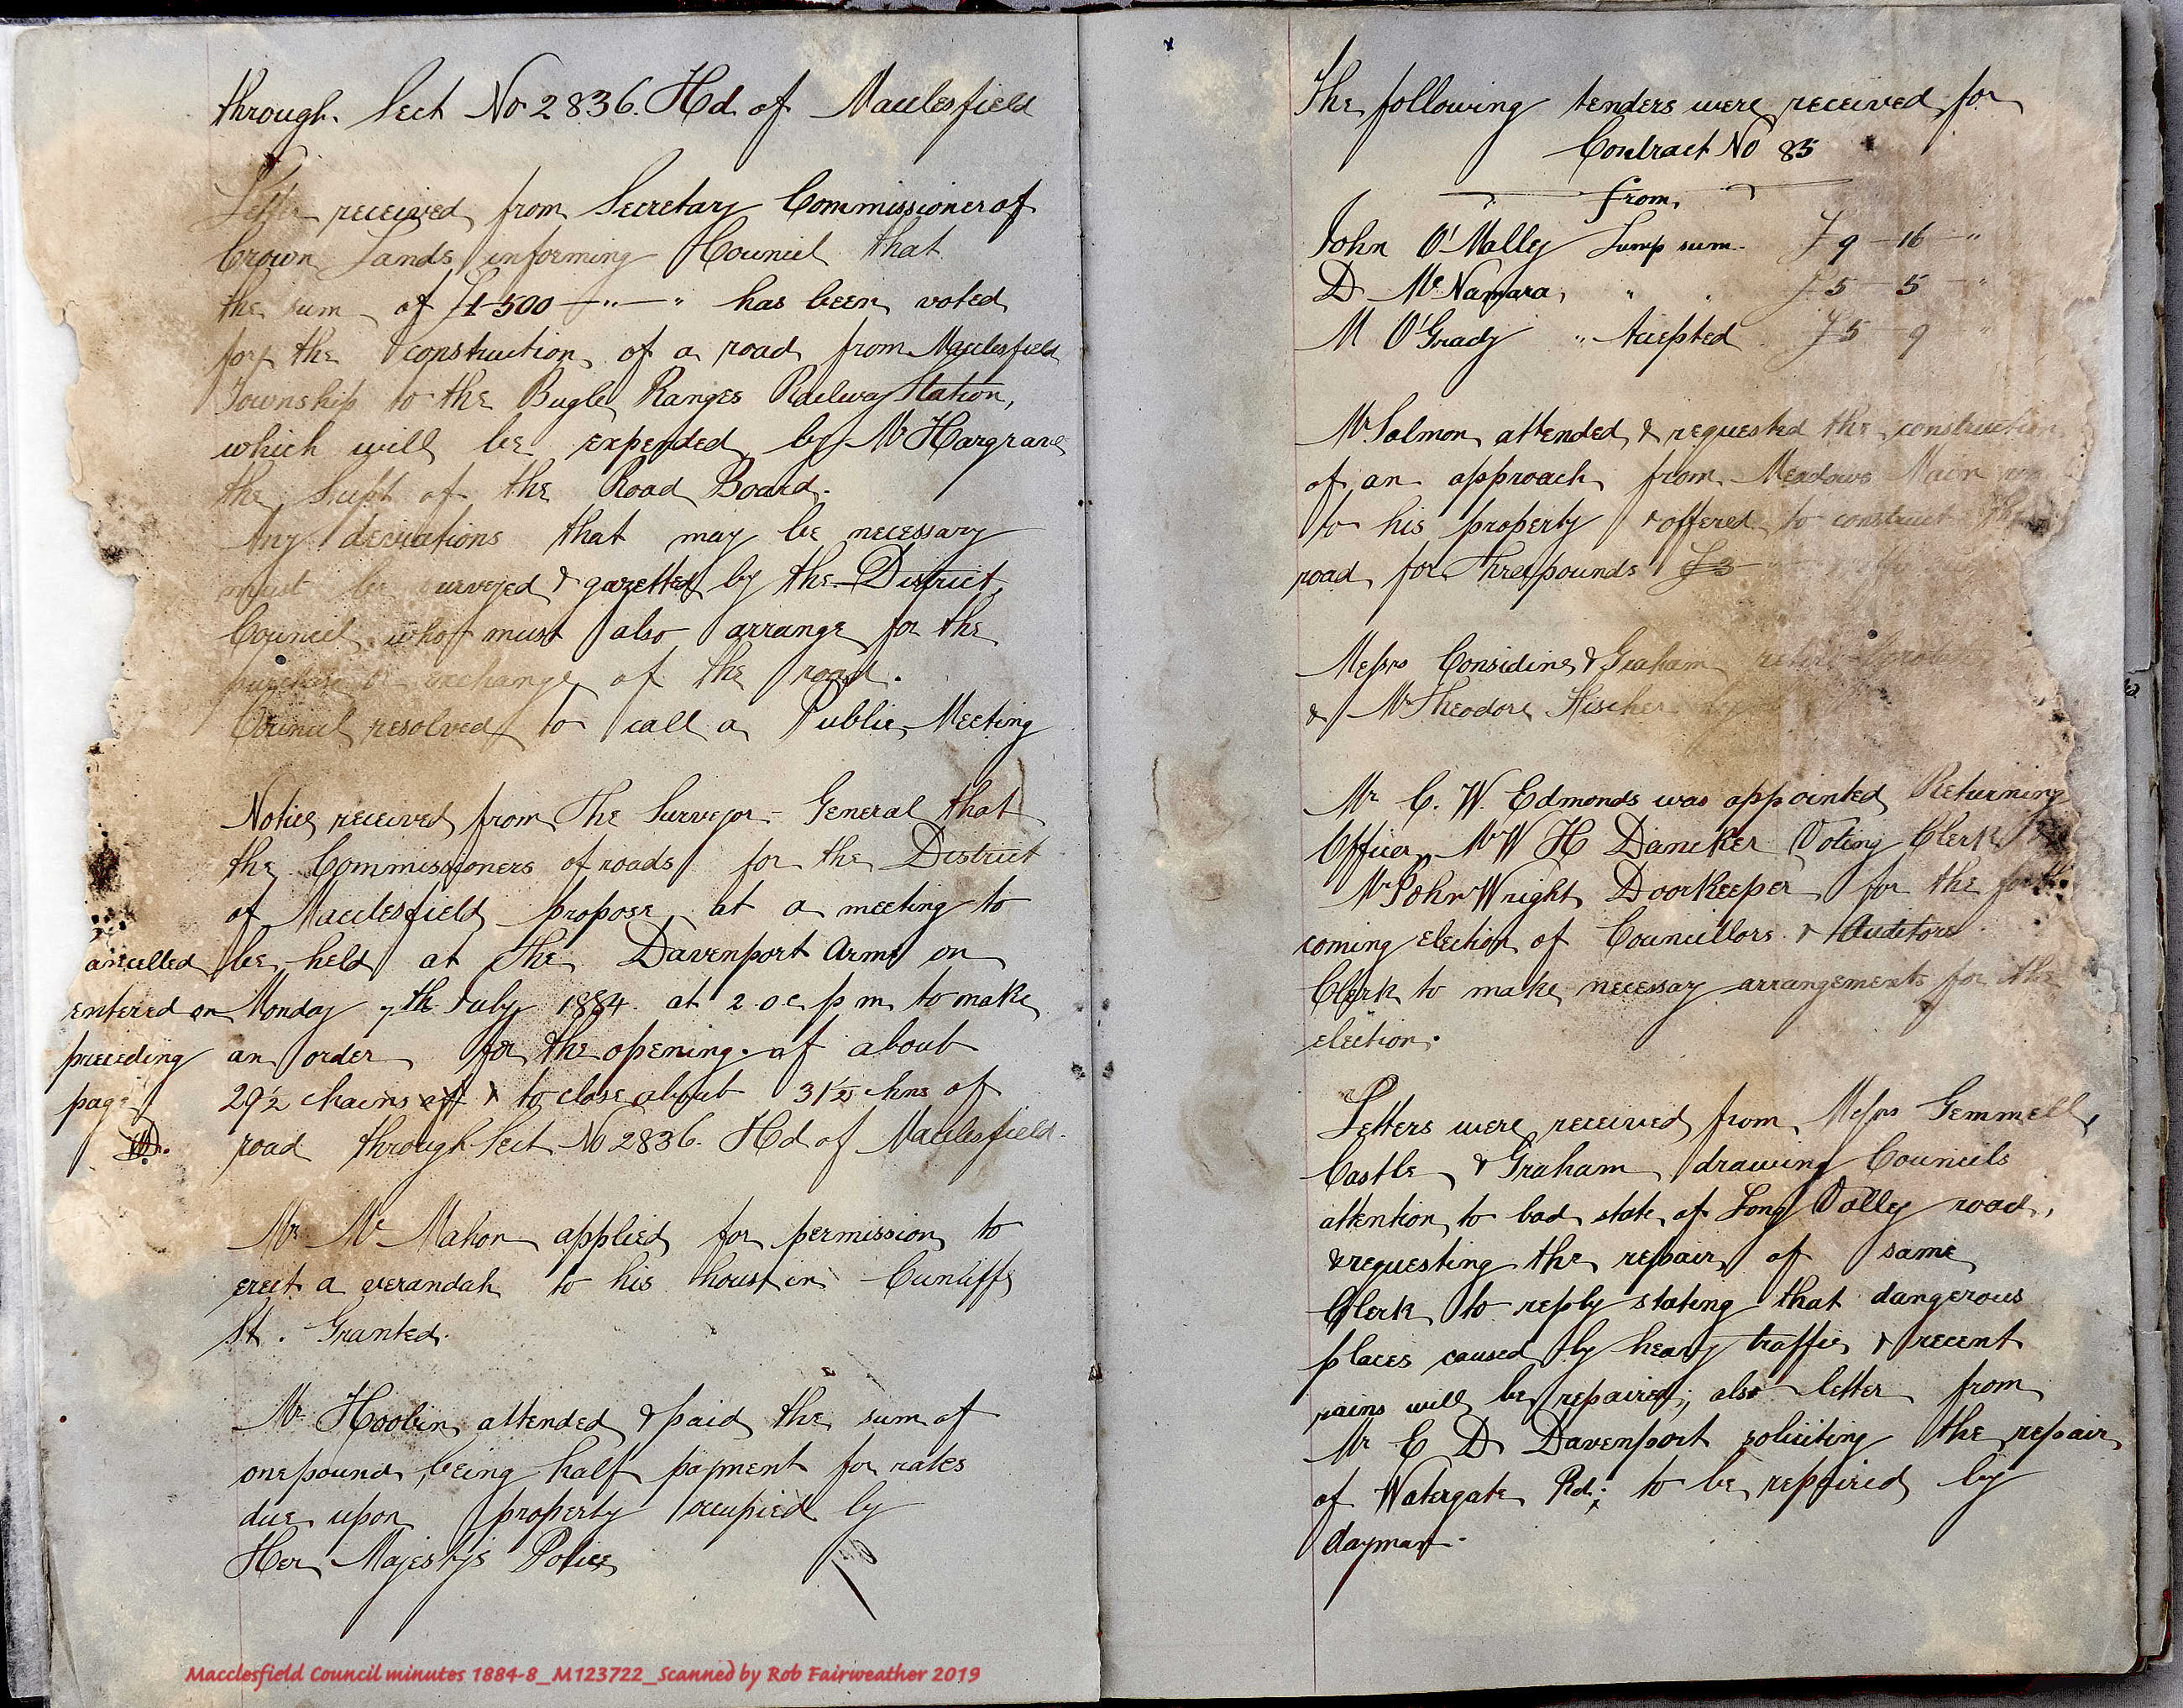 through Sect No 2836. Hd. of Macclesfield
Letter received from Secretary Commissioner of
Crown Lands informing Council that
the sum of £1500 — " — " has been voted
for the construction of a road from Macclesfield
Township to the Bugle Ranges Railway Station,
which will be expended by Mr Hargrave
the Supt of the Road Board.
Any deviations that may be necessary
must be surveyed & gazetted by the District
Council who must also arrange for the
purchase or exchange of the road.
Council resolved to call a Public Meeting
Notice received from The Surveyor-General that
the Commissioners of roads for the District
of Macclesfield propose at a meeting to
be held at The Davenport Arms on
Monday 7th July 1884 at 2 oc p m to make
an order for the opening of about
29½ chains off & to close about 31½ chns of
road through Sect No 2836. Hd of Macclesfield.
ancelled
entered on
preceding
page
Mr Mc Mahon applied for permission to
erect a verandah to his house in Cunliffe
St. Granted.
Mr Hoobin attended & paid the sum of
one pound, being half payment for rates
due upon property occupied by
Her Majestys Police
The following tenders were received for
Contract No 85
from
John O'Mally Lump sum. £9 — 16 — "
D McNamara, " " £5 — 5 — "
M O'Grady " Accepted £5 — 9 — "
Mr Salmon attended & requested the construction
of an approach from Meadows Main
to his property & offered to construct
road for Three pounds £3
Messrs Considine & Graham
& Mr Theodore Fischer
Mr C. W. Edmonds was appointed Returning
Officer, Mr W H Dancker Voting Clerk
Mr John Wright Doorkeeper for the forth
coming election of Councillors & Auditors.
Clerk to make necessary arrangements for the
election.
Letters were received from Messrs Gemmell,
Castle & Graham drawing Councils
attention to bad state of Long Vally road,
& requesting the repair of same
Clerk to reply stating that dangerous
places caused by heavy traffic & recent
rains will be repaired; also letter from
Mr E D Davenport soliciting the repair
of Watergate Rd; to be repaired by
dayman.
Macclesfield Council minutes 1884-8_M123722_Scanned by Rob Fairweather 2019